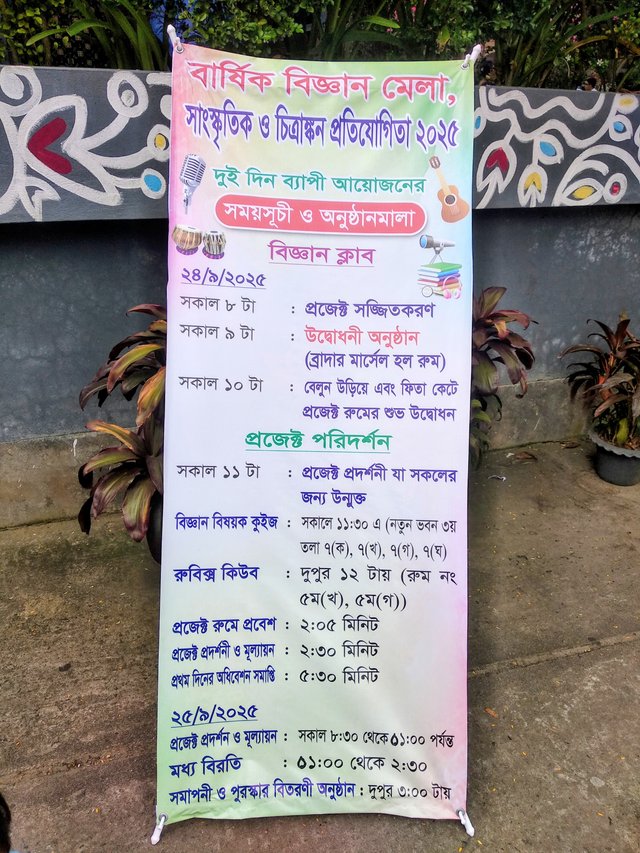 বার্ষিক বিজ্ঞান মেলা,
সাংস্কৃতিক ও চিত্রাঙ্কন প্রতিযোগিতা ২০২৫
দুই দিন ব্যাপী আয়োজনের
সময়সূচী ও অনুষ্ঠানমালা
বিজ্ঞান ক্লাব
২৪/৯/২০২৫
সকাল ৮ টা : প্রজেক্ট সজ্জিতকরণ
সকাল ৯ টা : উদ্বোধনী অনুষ্ঠান
(ব্রাদার মার্সেল হল রুম)
সকাল ১০ টা : বেলুন উড়িয়ে এবং ফিতা কেটে
প্রজেক্ট রুমের শুভ উদ্বোধন
প্রজেক্ট পরিদর্শন
সকাল ১১ টা : প্রজেক্ট প্রদর্শনী যা সকলের
জন্য উন্মুক্ত
বিজ্ঞান বিষয়ক কুইজ : সকালে ১১:৩০ এ (নতুন ভবন ৩য়
তলা ৭(ক), ৭(খ), ৭(গ), ৭(ঘ)
রুবিক্স কিউব : দুপুর ১২ টায় (রুম নং
৫ম(খ), ৫ম(গ))
প্রজেক্ট রুমে প্রবেশ : ২:০৫ মিনিট
প্রজেক্ট প্রদর্শনী ও মূল্যায়ন : ২:৩০ মিনিট
প্রথম দিনের অধিবেশন সমাপ্তি : ৫:৩০ মিনিট
২৫/৯/২০২৫
প্রজেক্ট প্রদর্শন ও মূল্যায়ন : সকাল ৮:৩০ থেকে ০১:০০ পর্যন্ত
মধ্য বিরতি : ০১:০০ থেকে ২:৩০
সমাপনী ও পুরস্কার বিতরণী অনুষ্ঠান : দুপুর ৩:০০ টায়